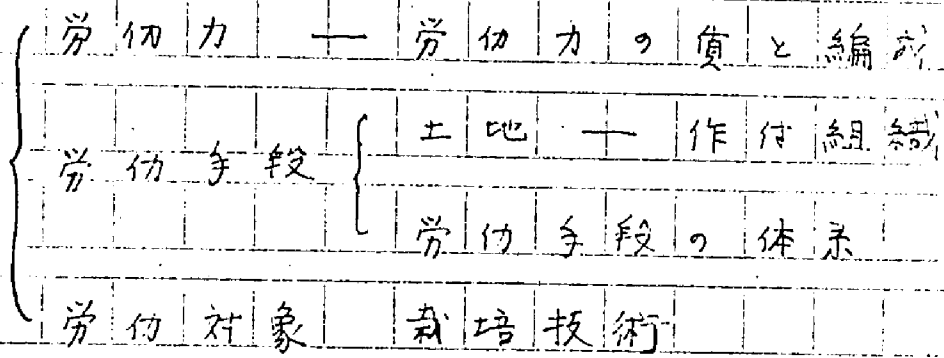 労仂力 ― 労仂力の質と編成
労仂手段 土地 ― 作付組織
労仂手段の体系
労仂対象 栽培技術